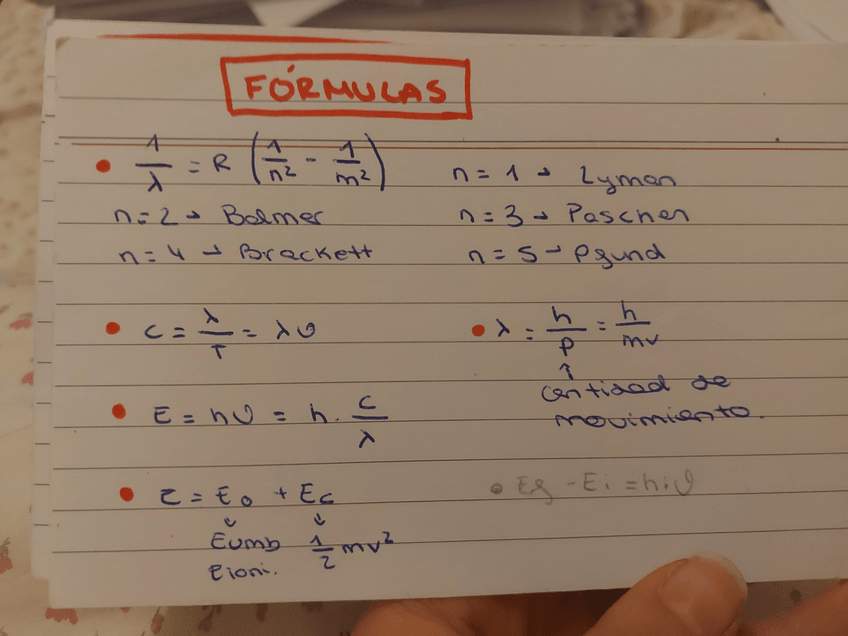 FÓRMULAS
1/λ = R (1/n² - 1/m²)
n = 1 → Lyman
n = 2 → Balmer
n = 3 → Paschen
n = 4 → Brackett
n = 5 → Pfund
c = λ/T = λν
λ = h/p = h/mv
↑
Cantidad de
movimiento.
E = hν = h · c/λ
E = E₀ + Ec
↓ ↓
Eumb 1/2 mv²
Eioni.
Ef - Ei = h·ν